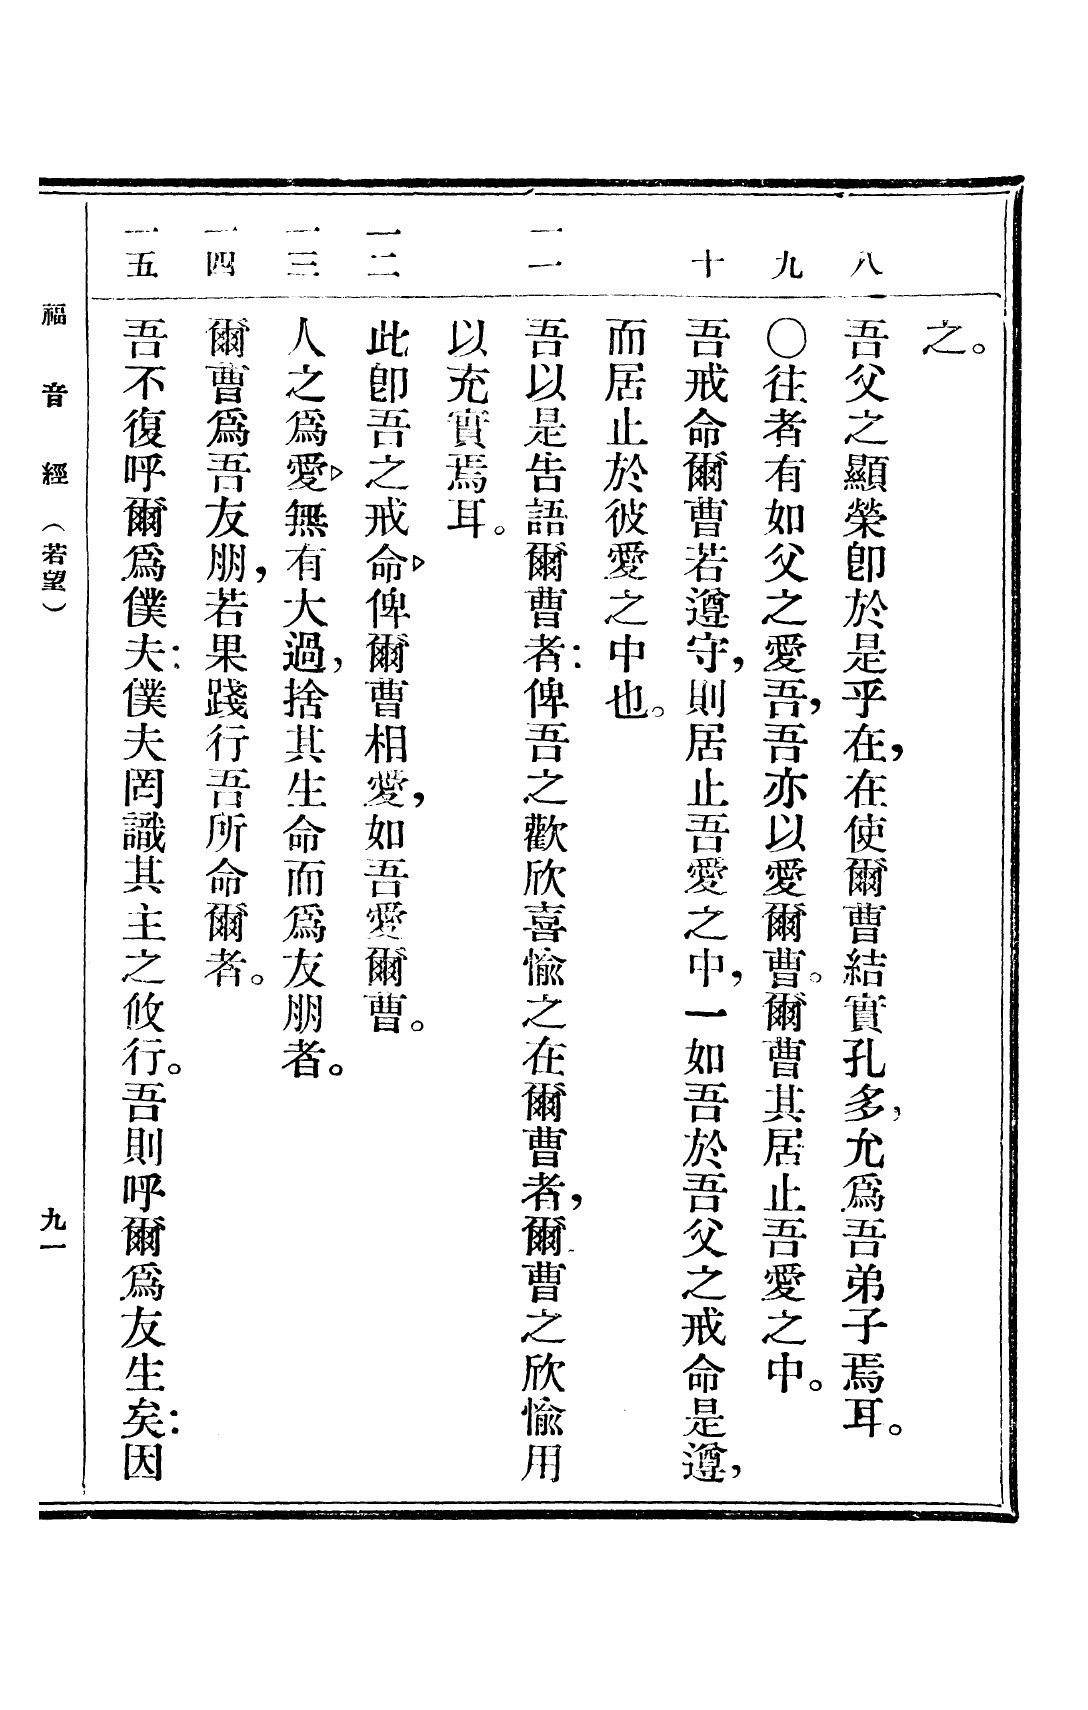 之。
八 吾父之顯榮卽於是乎在，在使爾曹結實孔多，允爲吾弟子焉耳。
九 〇往者有如父之愛吾，吾亦以愛爾曹。爾曹其居止吾愛之中。
十 吾戒命爾曹若遵守，則居止吾愛之中，一如吾於吾父之戒命是遵，
而居止於彼愛之中也。
一一 吾以是告語爾曹者：俾吾之歡欣喜愉之在爾曹者，爾曹之欣愉用
以充實焉耳。
一二 此卽吾之戒命▹俾爾曹相愛，如吾愛爾曹。
一三 人之爲愛▹無有大過，捨其生命而爲友朋者。
一四 爾曹爲吾友朋，若果踐行吾所命爾者。
一五 吾不復呼爾爲僕夫：僕夫罔識其主之攸行。吾則呼爾爲友生矣：因
福音經（若望） 九一